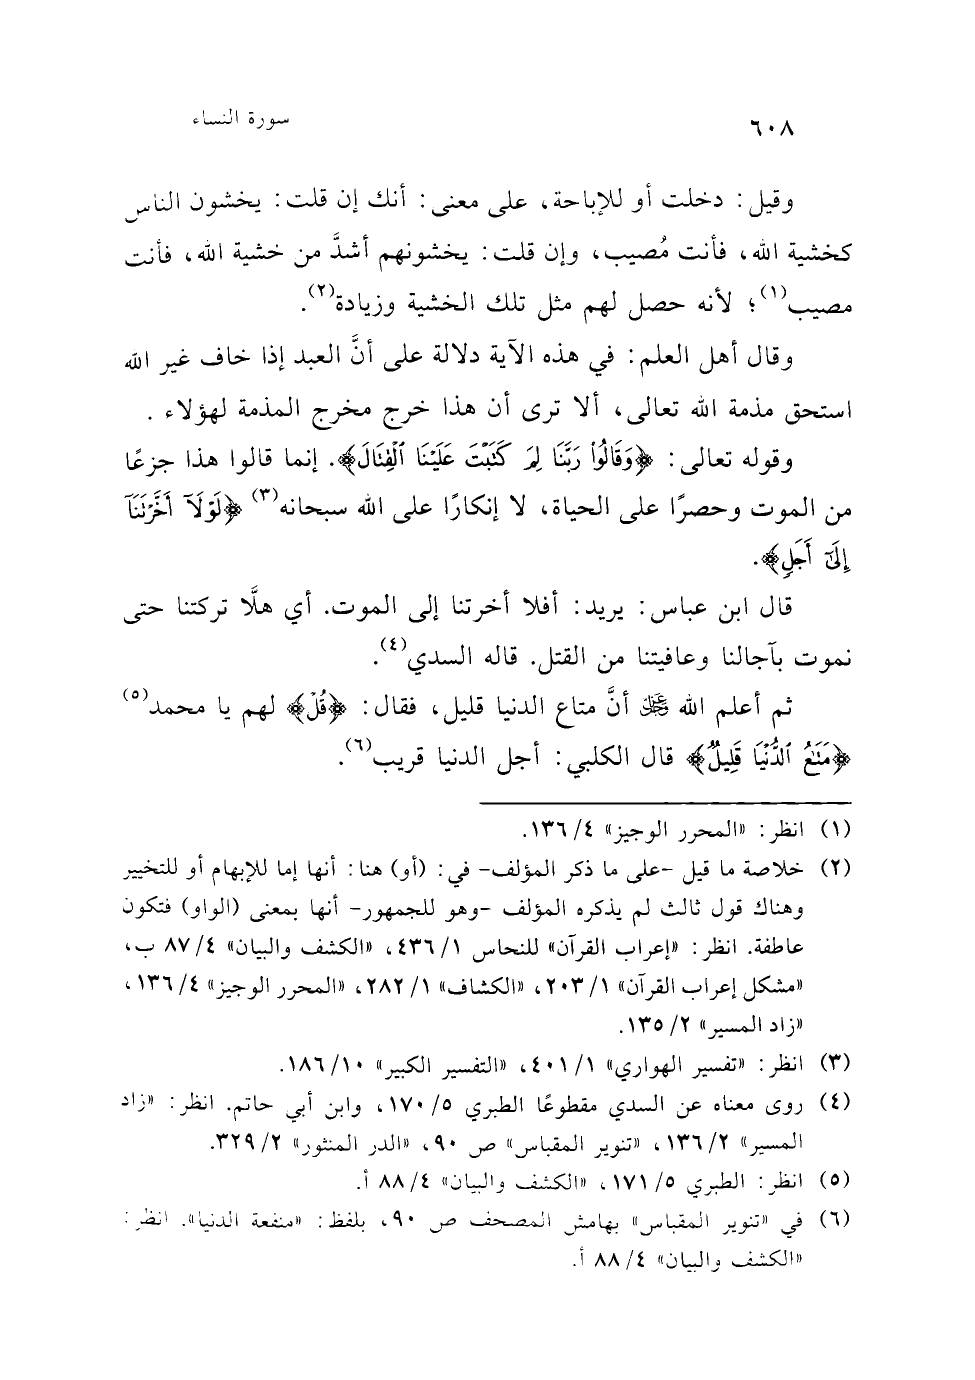 ٦٠٨ سورة النساء
وقيل: دخلت أو للإباحة، على معنى: أنك إن قلت: يخشون الناس
كخشية الله، فأنت مُصيب، وإن قلت: يخشونهم أشدَّ من خشية الله، فأنت
مصيب(١)؛ لأنه حصل لهم مثل تلك الخشية وزيادة(٢).
وقال أهل العلم: في هذه الآية دلالة على أنَّ العبد إذا خاف غير الله
استحق مذمة الله تعالى، ألا ترى أن هذا خرج مخرج المذمة لهؤلاء.
وقوله تعالى: ﴿وَقَالُواْ رَبَّنَا لِمَ كَتَبْتَ عَلَيْنَا ٱلْقِتَالَ﴾. إنما قالوا هذا جزعًا
من الموت وحصرًا على الحياة، لا إنكارًا على الله سبحانه(٣) ﴿لَوْلَآ أَخَّرْتَنَآ
إِلَىٰٓ أَجَلٍ﴾.
قال ابن عباس: يريد: أفلا أخرتنا إلى الموت. أي هلَّا تركتنا حتى
نموت بآجالنا وعافيتنا من القتل. قاله السدي(٤).
ثم أعلم الله عز وجل أنَّ متاع الدنيا قليل، فقال: ﴿قُلْ﴾ لهم يا محمد(٥)
﴿مَتَٰعُ ٱلدُّنْيَا قَلِيلٌ﴾ قال الكلبي: أجل الدنيا قريب(٦).
(١) انظر: «المحرر الوجيز» ٤/ ١٣٦.
(٢) خلاصة ما قيل -على ما ذكر المؤلف- في: (أو) هنا: أنها إما للإبهام أو للتخيير
وهناك قول ثالث لم يذكره المؤلف -وهو للجمهور- أنها بمعنى (الواو) فتكون
عاطفة. انظر: «إعراب القرآن» للنحاس ١/ ٤٣٦، «الكشف والبيان» ٤/ ٨٧ ب،
«مشكل إعراب القرآن» ١/ ٢٠٣، «الكشاف» ١/ ٢٨٢، «المحرر الوجيز» ٤/ ١٣٦،
«زاد المسير» ٢/ ١٣٥.
(٣) انظر: «تفسير الهواري» ١/ ٤٠١، «التفسير الكبير» ١٠/ ١٨٦.
(٤) روى معناه عن السدي مقطوعًا الطبري ٥/ ١٧٠، وابن أبي حاتم. انظر: «زاد
المسير» ٢/ ١٣٦، «تنوير المقباس» ص ٩٠، «الدر المنثور» ٢/ ٣٢٩.
(٥) انظر: الطبري ٥/ ١٧١، «الكشف والبيان» ٤/ ٨٨ أ.
(٦) في «تنوير المقباس» بهامش المصحف ص ٩٠، بلفظ: «منفعة الدنيا». انظر:
«الكشف والبيان» ٤/ ٨٨ أ.